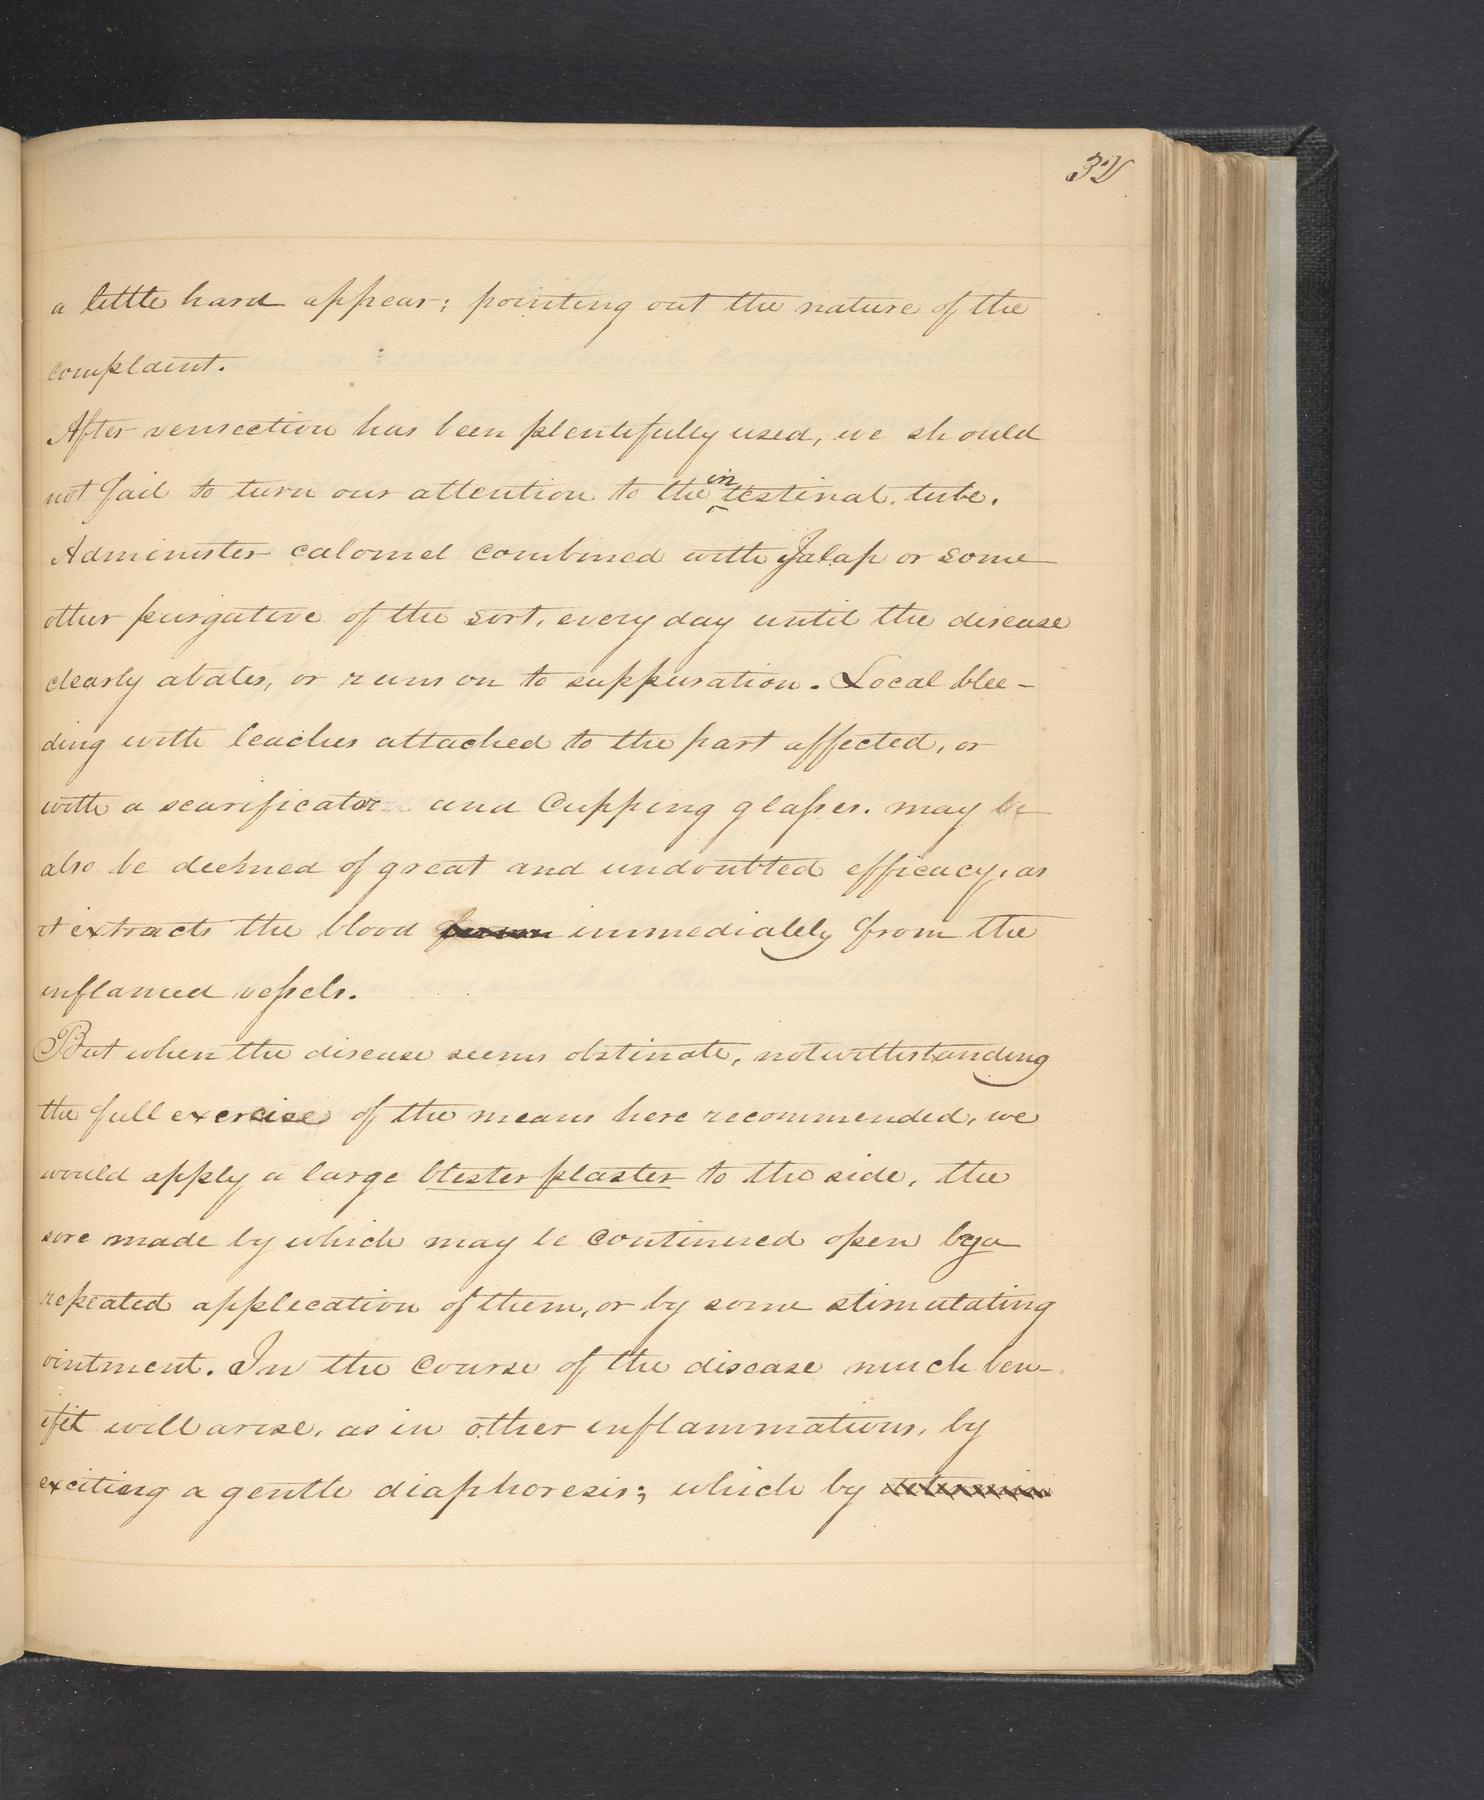 32
a little hard appear; pointing out the nature of the
complaint.
After venisection has been plentifully used, we should
not fail to turn our attention to the intestinal tube.
Administer calomel combined with Jalap or some
other purgative of the sort, every day until the disease
clearly abates, or runs on to suppuration. Local blee-
ding with leaches attached to the part affected, or
with a scarificator and Cupping glasses. may be
also be deemed of great and undoubted efficacy, as
it extracts the blood immediately from the
inflamed vessels.
But when the disease seems obstinate, notwithstanding
the full exercise of the means here recommended, we
would apply a large blister plaster to the side, the
sore made by which may be continued open by a
repeated application of them, or by some stimulating
ointment. In the course of the disease much ben-
ifit will arise, as in other inflammations, by
exciting a gentle diaphoresis; which by